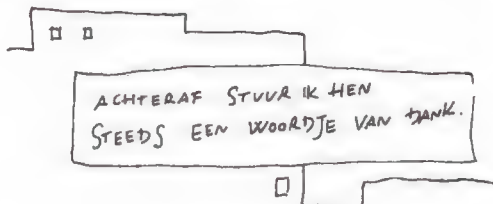 ACHTERAF STUUR IK HEN
STEEDS EEN WOORDJE VAN DANK.